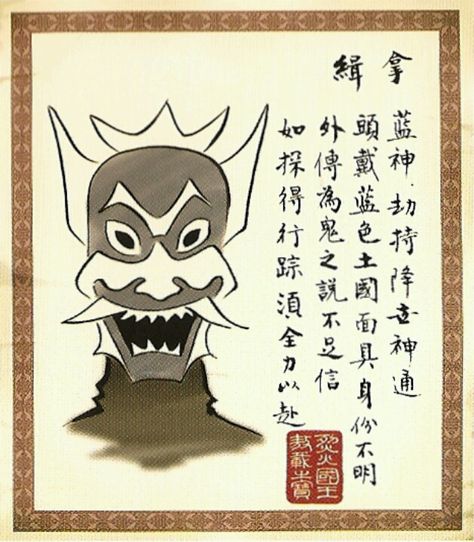 緝拿
藍神．劫持降世神通
頭戴藍色土國面具身份不明
外傳為鬼之說不足信
如探得行踪須全力以赴
烈火國王